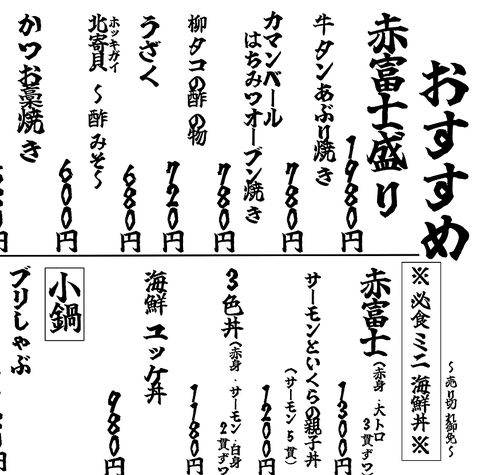 おすすめ
赤富士盛り
1980円
牛タンあぶり焼き
780円
カマンベール
はちみつオーブン焼き
780円
柳タコの酢の物
720円
うざく
680円
ホッキガイ
北寄貝 ～酢みそ～
600円
かつお藁焼き
円
～売り切れ御免～
※必食ミニ海鮮丼※
赤富士（赤身・大トロ
3貫ずつ
1300円
サーモンといくらの親子丼
（サーモン5貫）
1200円
3色丼（赤身・サーモン・白身
2貫ずつ
1180円
海鮮ユッケ丼
980円
小鍋
ブリしゃぶ